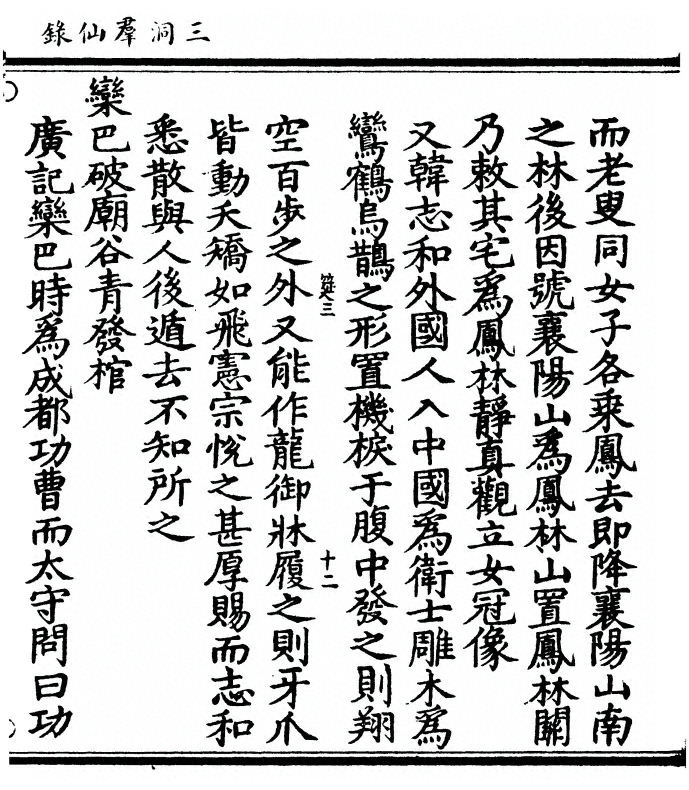 三洞羣仙錄
而老叟同女子各乘鳳去即降襄陽山南
之林後因號襄陽山爲鳳林山置鳳林關
乃敕其宅爲鳳林靜真觀立女冠像
又韓志和外國人入中國爲衛士雕木爲
鸞鶴烏鵲之形置機棙于腹中發之則翔
筵三
十二
空百步之外又能作龍御牀履之則牙爪
皆動夭矯如飛憲宗悅之甚厚賜而志和
悉散與人後遁去不知所之
欒巴破廟谷青發棺
廣記欒巴時爲成都功曹而太守問曰功